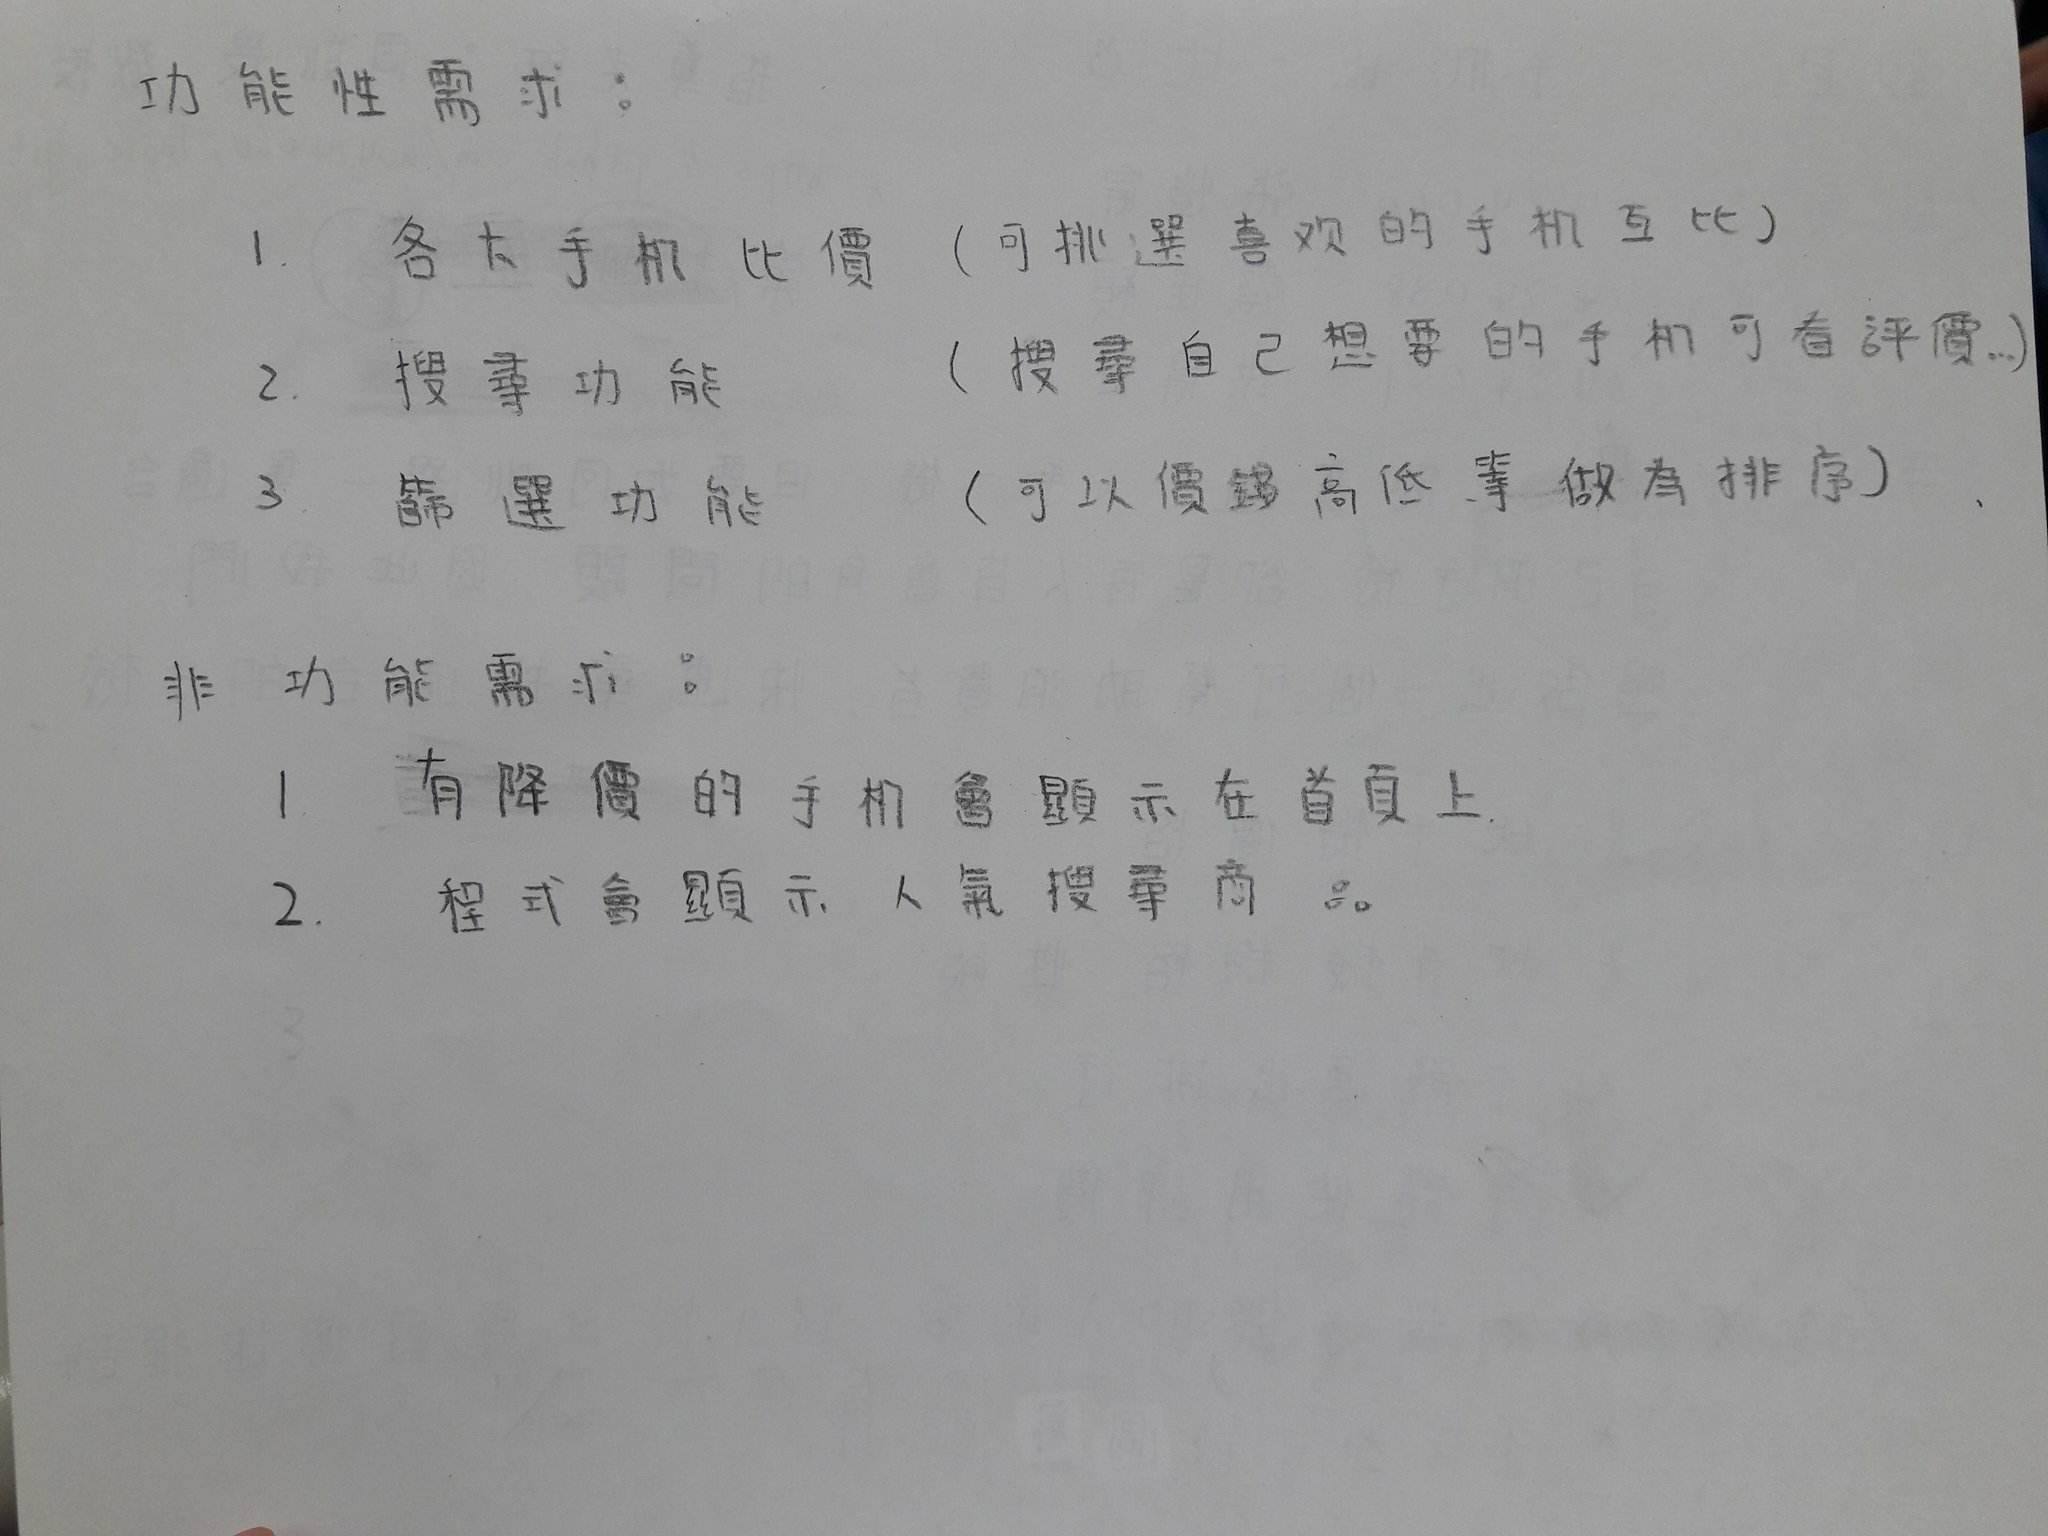 功能性需求：
1. 各大手机比價 (可挑選喜欢的手机互比)
2. 搜尋功能 (搜尋自己想要的手机可看評價...)
3. 篩選功能 (可以價錢高低等做為排序)
非功能需求：
1 有降價的手机會顯示在首頁上.
2. 程式會顯示人氣搜尋商品。